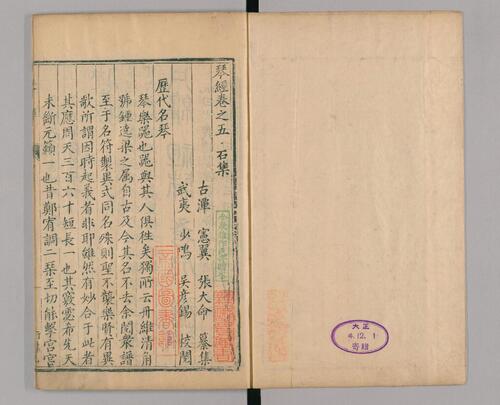 琴經卷之五　石集
古潭　憲翼　張大命　纂集
武夷　少鳴　吳彥錫　校閱
歷代名琴
琴樂器也器與其人俱徃矣獨所云丹維清角
號鍾遶梁之属自古及今其名不去余閱衆譜
至于名符製異式同名殊則聖不襲樂時有異
歌所謂因時起義者非耶雖然有妙合于此者
其應周天三百六十短長一也其竅靈希先天
未斷元籟一也昔鄭宥調二琴至切能擊宮宮
大正
4.12.1
寄贈